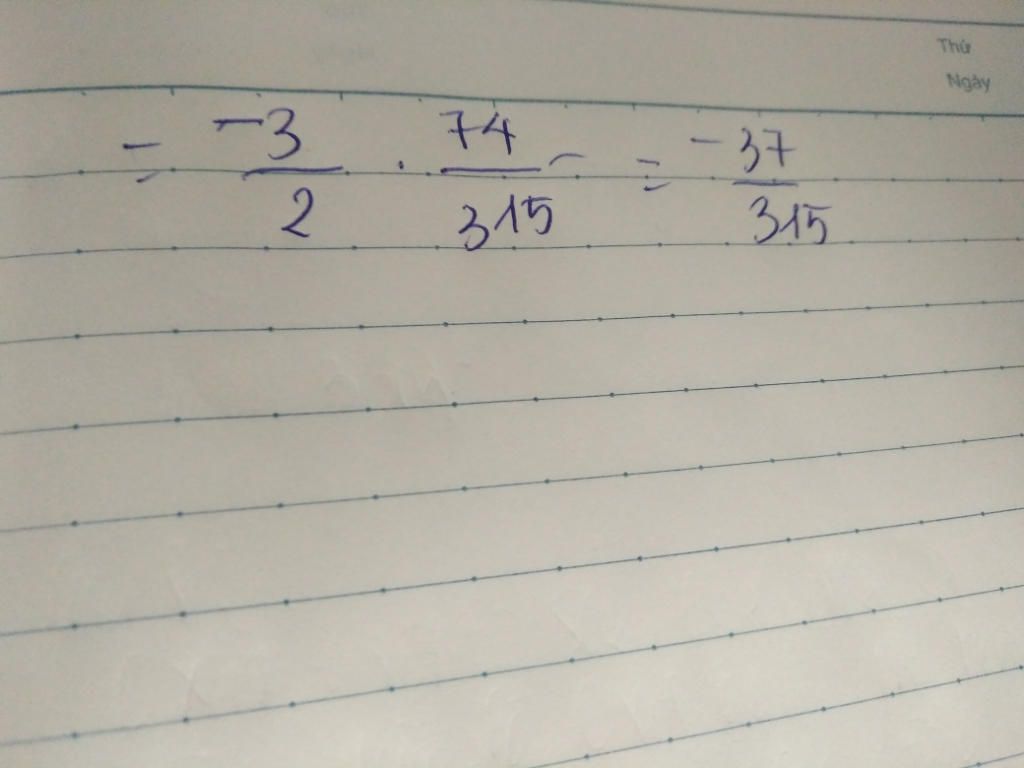 Thứ
Ngày
= -3/2 . 74/315 = -37/315